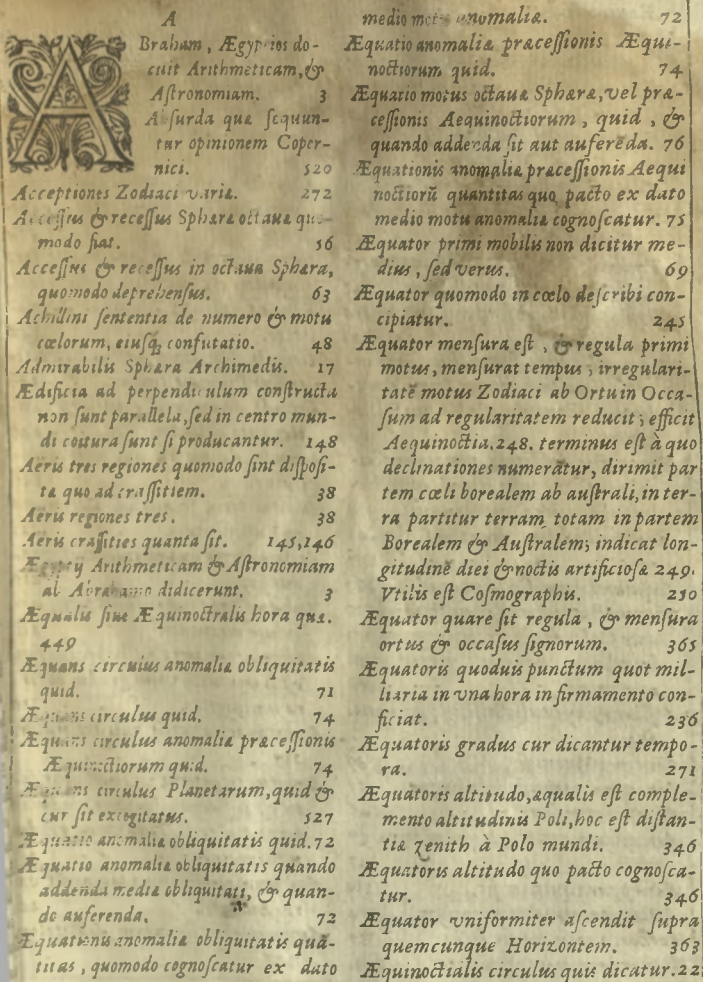 A
ABraham, Ægyptios do-
cuit Arithmeticam, &
Aſtronomiam. 3
Abſurda quæ ſequun-
tur opinionem Coper-
nici. 520
Acceptiones Zodiaci variæ. 272
Acceſſus & receſſus Sphæræ octauæ quo-
modo fiat. 56
Acceſſus & receſſus in octaua Sphæra,
quomodo deprehenſus. 63
Achillini ſententia de numero & motu
cœlorum, eiuſq; confutatio. 48
Admirabilis Sphæra Archimedis. 17
Ædificia ad perpendiculum conſtructa
non ſunt parallela, ſed in centro mun-
di coitura ſunt ſi producantur. 148
Aeris tres regiones quomodo ſint diſpoſi-
tæ quo ad craſſitiem. 38
Aeris regiones tres. 38
Aeris craſſities quanta ſit. 145,146
Ægyptij Arithmeticam & Aſtronomiam
ab Abrahamo didicerunt. 3
Æqualis ſiue Æquinoctialis hora quæ.
449
Æquans circulus anomaliæ obliquitatis
quid. 71
Æquans circulus quid. 74
Æquans circulus anomaliæ præceſſionis
Æquinoctiorum quid. 74
Æquans circulus Planetarum, quid &
cur ſit excogitatus. 527
Æquatio anomaliæ obliquitatis quid. 72
Æquatio anomaliæ obliquitatis quando
addenda mediæ obliquitati, & quan-
do auferenda. 72
Æquationis anomaliæ obliquitatis quā-
titas, quomodo cognoſcatur ex dato
medio motu anomaliæ. 72
Æquatio anomaliæ præceſſionis Æqui-
noctiorum quid. 74
Æquatio motus octauæ Sphæræ, vel præ-
ceſſionis Aequinoctiorum, quid, &
quando addenda ſit aut auferēda. 76
Æquationis anomaliæ præceſſionis Aequi
noctiorū quantitas quo pacto ex dato
medio motu anomaliæ cognoſcatur. 75
Æquator primi mobilis non dicitur me-
dius, ſed verus. 69
Æquator quomodo in cœlo deſcribi con-
cipiatur. 245
Æquator menſura eſt, & regula primi
motus, menſurat tempus; irregulari-
tatē motus Zodiaci ab Ortu in Occa-
ſum ad regularitatem reducit; efficit
Aequinoctia. 248. terminus eſt à quo
declinationes numerātur, dirimit par
tem cœli borealem ab auſtrali, in ter-
ra partitur terram totam in partem
Borealem & Auſtralem; indicat lon-
gitudinē diei & noctis artificioſæ 249.
Vtilis eſt Coſmographis. 250
Æquator quare ſit regula, & menſura
ortus & occaſus ſignorum. 365
Æquatoris quoduis punctum quot mil-
liaria in vna hora in firmamento con-
ficiat. 236
Æquatoris gradus cur dicantur tempo-
ra. 271
Æquatoris altitudo, æqualis eſt comple-
mento altitudinis Poli, hoc eſt diſtan-
tiæ zenith à Polo mundi. 346
Æquatoris altitudo quo pacto cognoſca-
tur. 346
Æquator vniformiter aſcendit ſupra
quemcunque Horizontem. 363
Æquinoctialis circulus quis dicatur. 22